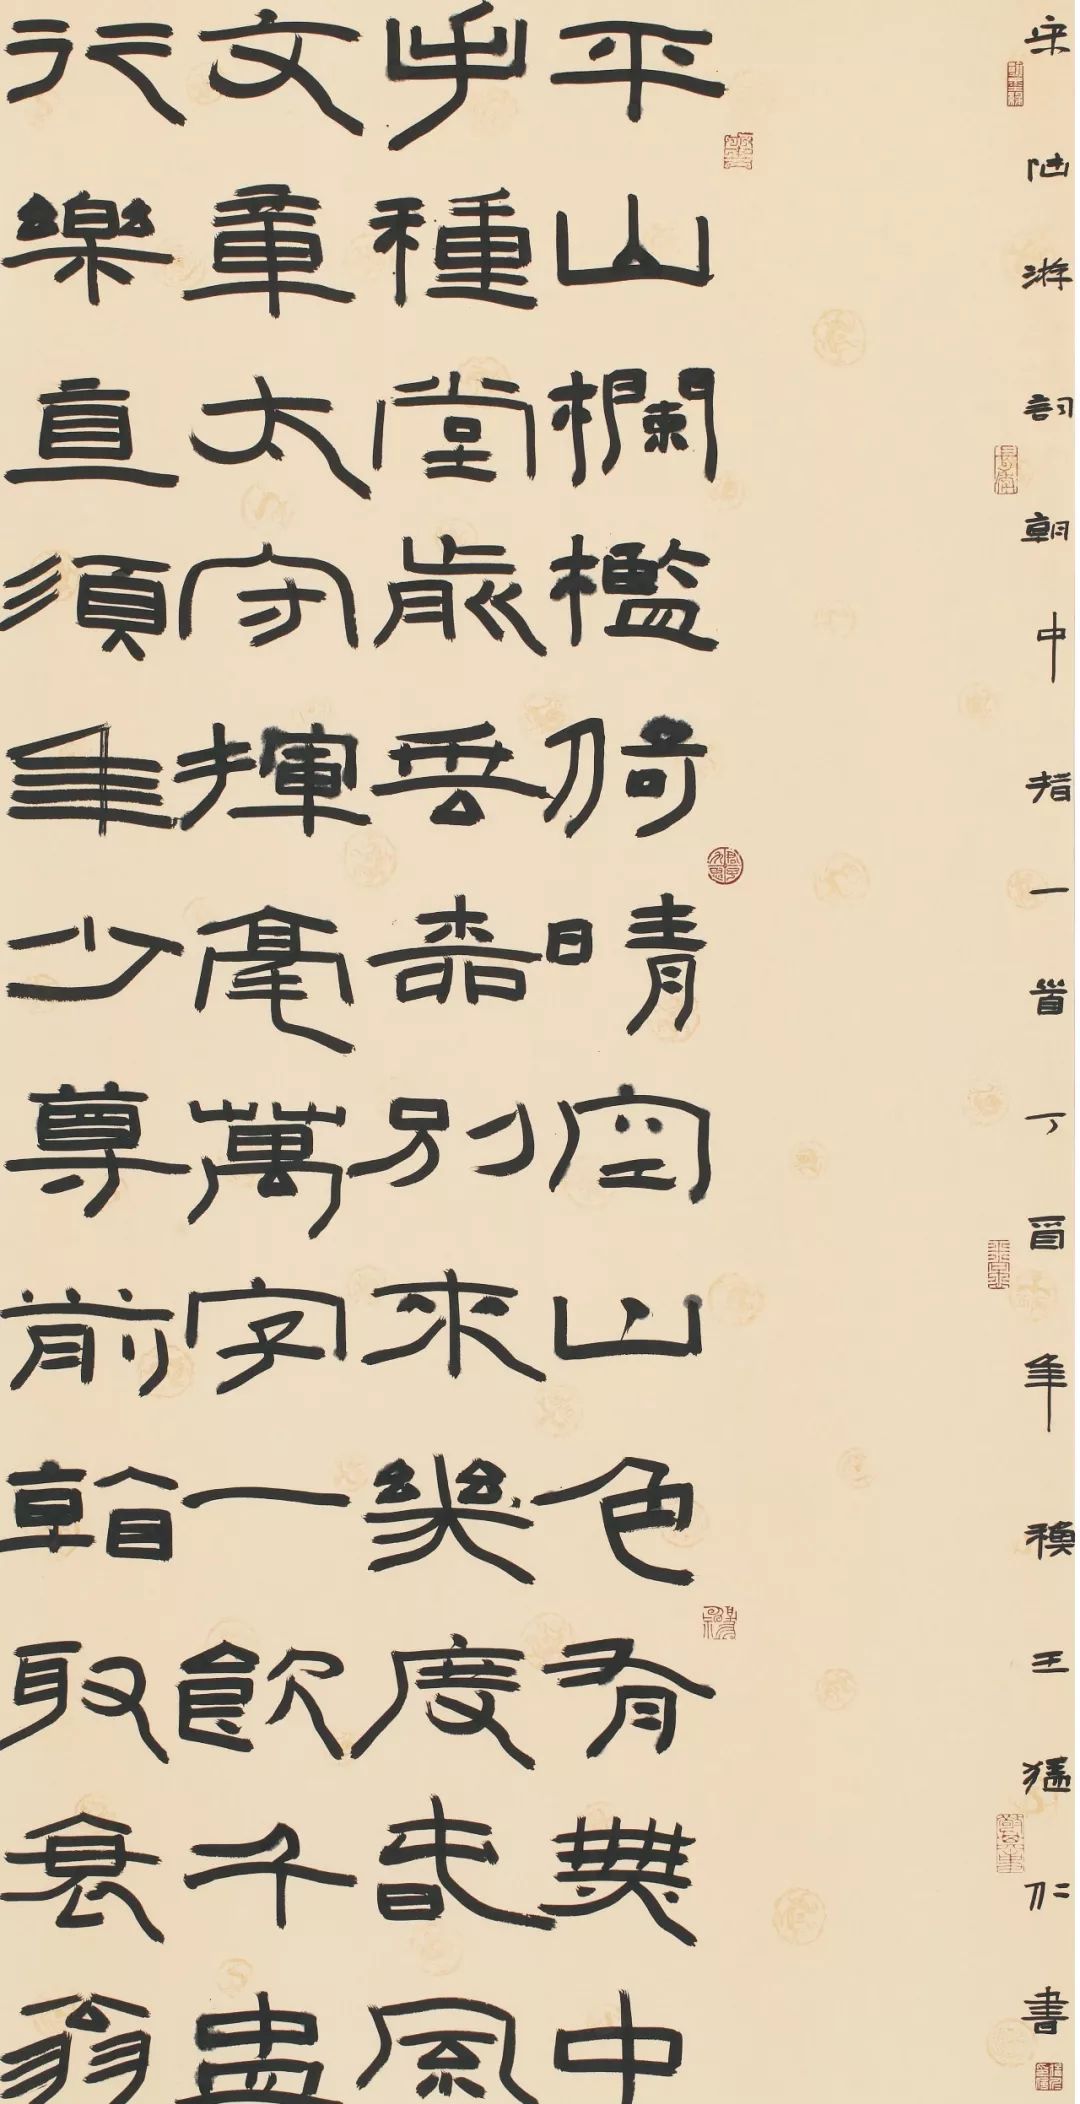 宋陆游詞朝中措一首丁酉年王猛仁書
平山欄檻倚晴空山色有無中
手種堂前垂柳別來幾度春風
文章太守揮毫萬字一飲千盅
行樂直須年少尊前看取衰翁